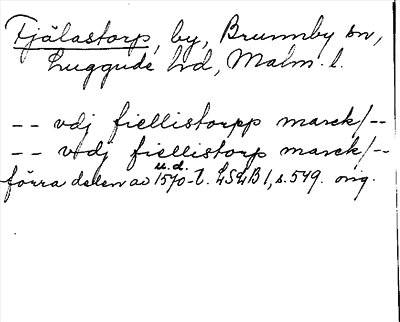 Fjälastorp, by, Brunnby sn,
Luggude hd, Malm. l.
-- vdj fiellistorpp marck/--
-- vdj fiellistorp marck/--
u.d.
förra delen av 1570-t. LSLB 1, s. 549. orig.